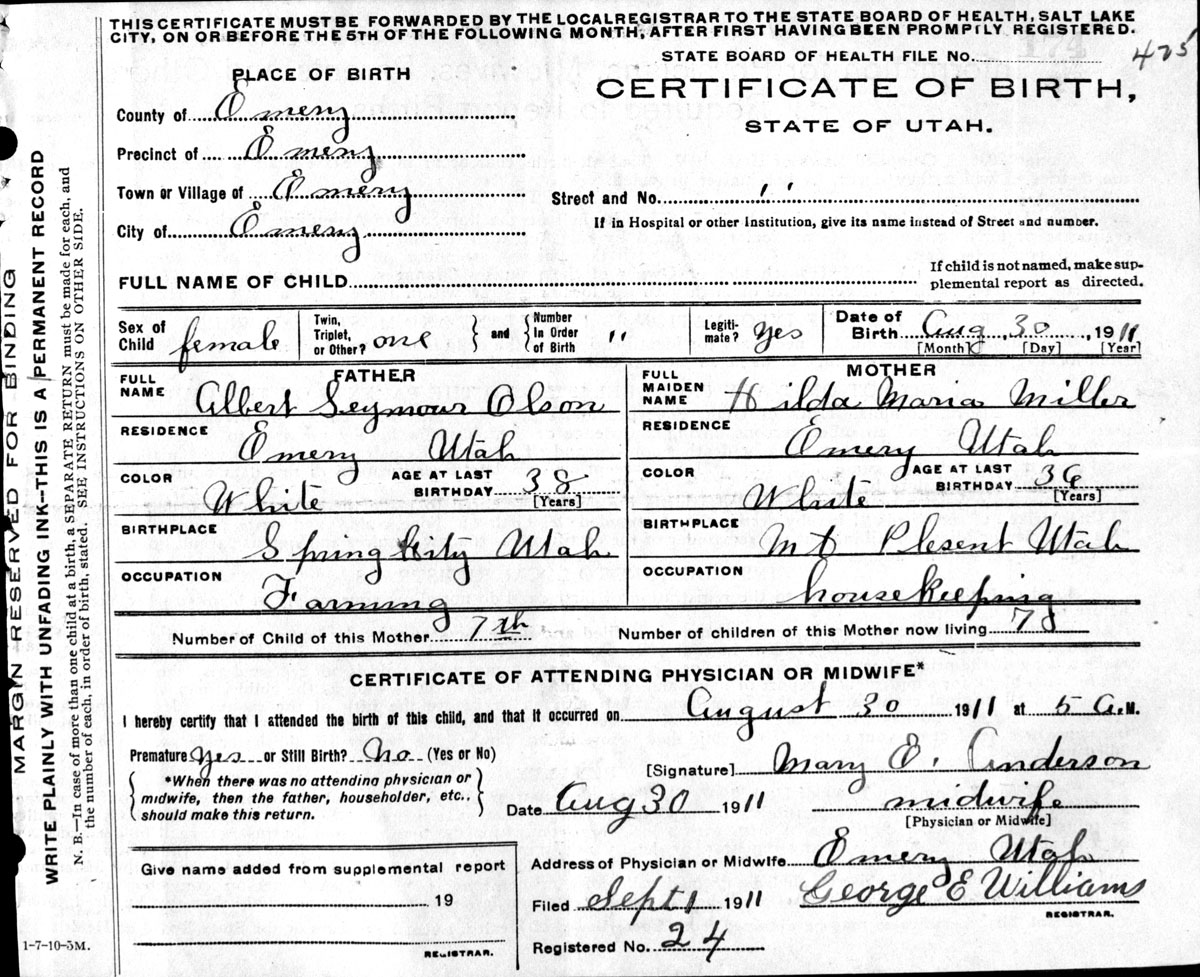 THIS CERTIFICATE MUST BE FORWARDED BY THE LOCAL REGISTRAR TO THE STATE BOARD OF HEALTH, SALT LAKE
CITY, ON OR BEFORE THE 5TH OF THE FOLLOWING MONTH, AFTER FIRST HAVING BEEN PROMPTLY REGISTERED.
STATE BOARD OF HEALTH FILE No. 425
PLACE OF BIRTH
CERTIFICATE OF BIRTH,
STATE OF UTAH.
County of Emery
Precinct of Emery
Town or Village of Emery
Street and No. " 
City of Emery
If in Hospital or other Institution, give its name instead of Street and number.
FULL NAME OF CHILD
If child is not named, make sup-
plemental report as directed.
Sex of Child female
Twin, Triplet, or Other? one
and
Number In Order of Birth "
Legiti-mate? yes
Date of Birth Aug 30, 1911
[Month] [Day] [Year]
FATHER
FULL NAME Albert Seymour Olson
RESIDENCE Emery Utah
COLOR White
AGE AT LAST BIRTHDAY 38 [Years]
BIRTHPLACE Spring City Utah
OCCUPATION Farming
MOTHER
FULL MAIDEN NAME Hilda Maria Miller
RESIDENCE Emery Utah
COLOR White
AGE AT LAST BIRTHDAY 36 [Years]
BIRTHPLACE Mt Plesent Utah
OCCUPATION housekeeping
Number of Child of this Mother 7th
Number of children of this Mother now living
CERTIFICATE OF ATTENDING PHYSICIAN OR MIDWIFE*
I hereby certify that I attended the birth of this child, and that it occurred on August 30 1911 at 5 A.M.
Premature yes or Still Birth? No (Yes or No)
*When there was no attending physician or
midwife, then the father, householder, etc.,
should make this return.
[Signature] Mary E. Anderson
Date Aug 30 1911
midwife
[Physician or Midwife]
Give name added from supplemental report
19
REGISTRAR.
Address of Physician or Midwife Emery Utah
Filed Sept 1 1911 George E Williams
REGISTRAR.
Registered No. 24
1-7-10-5M.
MARGIN RESERVED FOR BINDING
WRITE PLAINLY WITH UNFADING INK—THIS IS A PERMANENT RECORD
N. B.—In case of more than one child at a birth, a SEPARATE RETURN must be made for each, and
the number of each, in order of birth, stated. SEE INSTRUCTION ON OTHER SIDE.